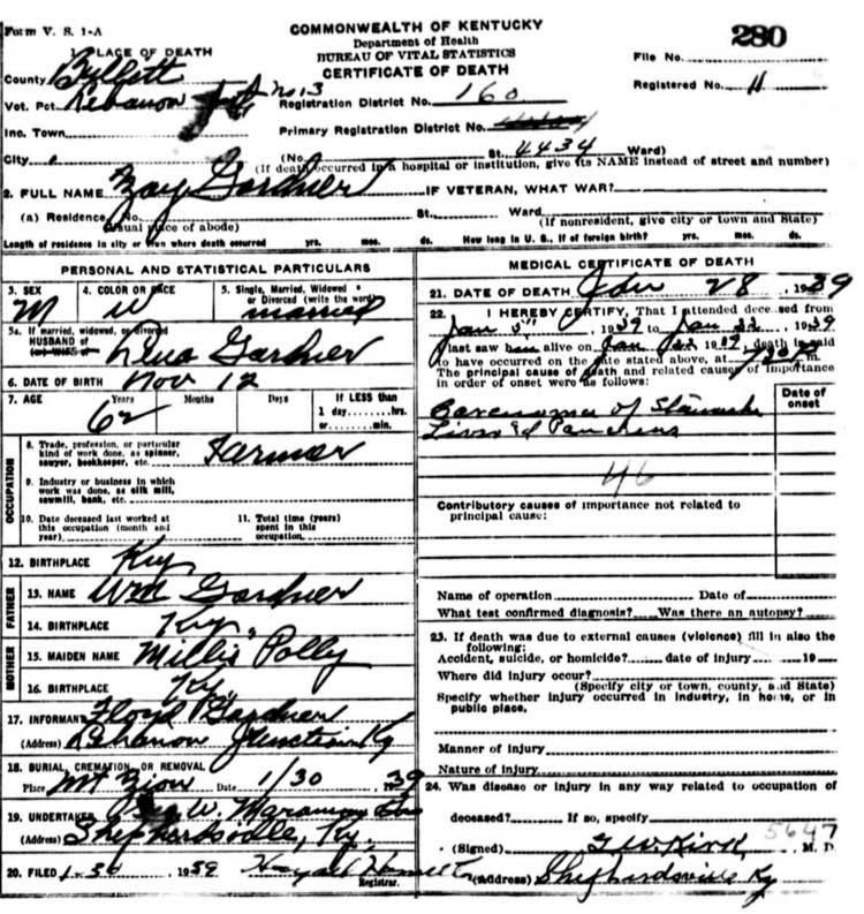 Form V. S. 1-A
COMMONWEALTH OF KENTUCKY
Department of Health
BUREAU OF VITAL STATISTICS
CERTIFICATE OF DEATH
280
File No.
Registered No. 11
1. PLACE OF DEATH
County Bullett
Vot. Pct. Lebanon No 3
Registration District No. 160
Inc. Town
Primary Registration District No.
4434
City (No. St. Ward)
(If death occurred in a hospital or institution, give its NAME instead of street and number)
2. FULL NAME Zay Gardner IF VETERAN, WHAT WAR?
(a) Residence. No. St. Ward
(Usual place of abode) (If nonresident, give city or town and State)
Length of residence in city or town where death occurred yrs. mos. ds. How long in U. S., if of foreign birth? yrs. mos. ds.
PERSONAL AND STATISTICAL PARTICULARS
3. SEX M
4. COLOR OR RACE W
5. Single, Married, Widowed or Divorced (write the word) married
5a. If married, widowed, or divorced
HUSBAND of
(or) WIFE of
Gardner
6. DATE OF BIRTH Nov 12
7. AGE Years Months Days If LESS than
62 1 day hrs.
or min.
OCCUPATION
8. Trade, profession, or particular
kind of work done, as spinner,
sawyer, bookkeeper, etc. Farmer
9. Industry or business in which
work was done, as silk mill,
sawmill, bank, etc.
10. Date deceased last worked at
this occupation (month and
year)
11. Total time (years)
spent in this
occupation
12. BIRTHPLACE Ky
FATHER
13. NAME Wm Gardner
14. BIRTHPLACE Ky.
MOTHER
15. MAIDEN NAME Millie Polly
16. BIRTHPLACE Ky.
17. INFORMANT Floyd Gardner
(Address) Lebanon Junction Ky
18. BURIAL, CREMATION, OR REMOVAL
Place Mt Zion Date 1/30, 1939
19. UNDERTAKER W. Maraman
(Address) Shepherdsville, Ky.
20. FILED 1-30, 1939
Registrar.
MEDICAL CERTIFICATE OF DEATH
21. DATE OF DEATH Jan 28, 1939
22. I HEREBY CERTIFY, That I attended deceased from
Jan 5", 1939 to Jan 22, 1939
I last saw him alive on Jan 22 1939, death is said
to have occurred on the date stated above, at m.
The principal cause of death and related causes of importance
in order of onset were as follows:
Date of
onset
Carcenoma of Stomach
Liver
46
Contributory causes of importance not related to
principal cause:
Name of operation Date of
What test confirmed diagnosis? Was there an autopsy?
23. If death was due to external causes (violence) fill in also the
following:
Accident, suicide, or homicide? date of injury 19
Where did injury occur?
(Specify city or town, county, and State)
Specify whether injury occurred in industry, in home, or in
public place.
Manner of injury
Nature of injury
24. Was disease or injury in any way related to occupation of
deceased? If so, specify
5647
(Signed) G W Kirk, M. D.
(Address) Shepherdsville Ky